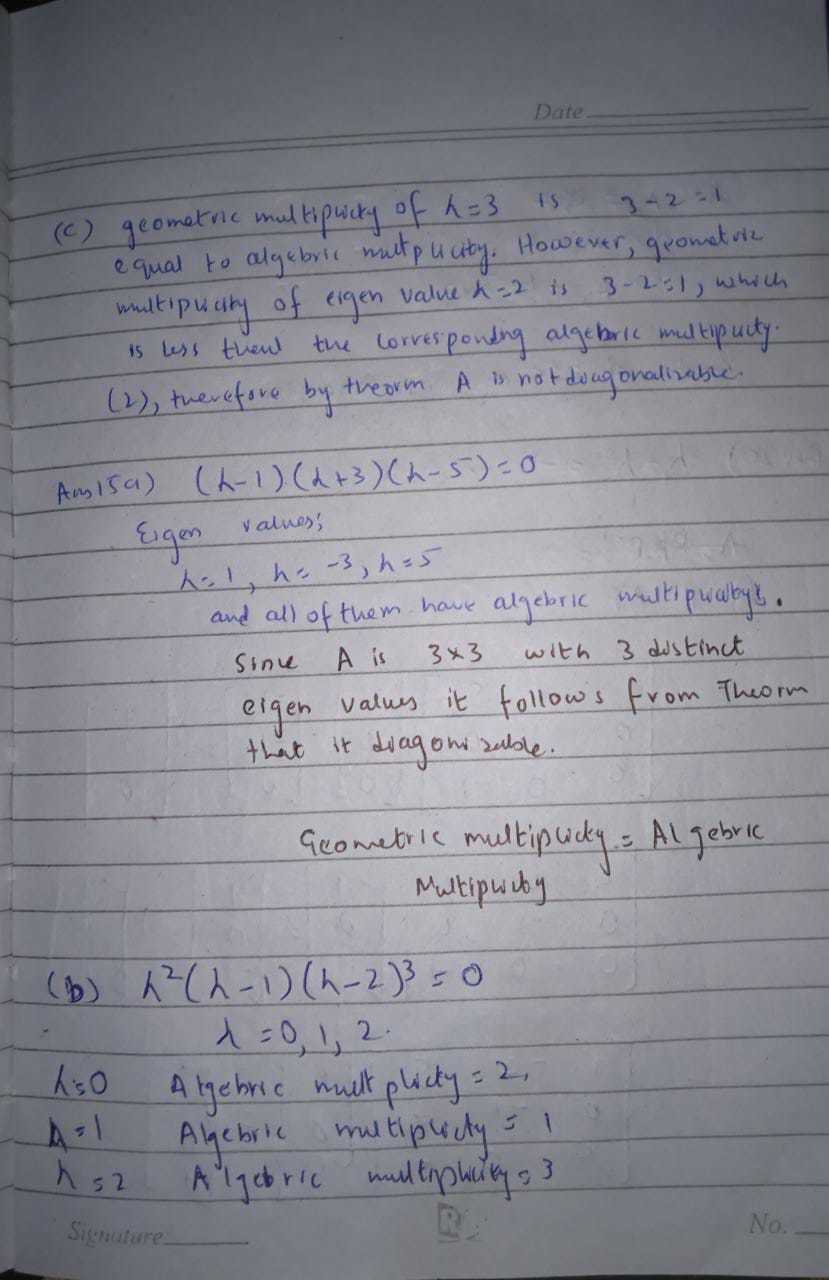 Date
(c) geometric multiplicity of λ=3 is 3-2=1
equal to algebric multplicity. However, geometric
multiplicity of eigen value λ=2 is 3-2=1, which
is less then the corresponding algebric multiplicity.
(2), therefore by theorm A is not diagonalizable.
Ans 15a) (λ-1)(λ+3)(λ-5)=0
Eigen values;
λ=1, λ= -3, λ=5
and all of them have algebric multiplicity
Since A is 3x3 with 3 distinct
eigen values it follows from Theorm
that it diagonizable.
Geometric multiplicity = Algebric
Multiplicity
(b) λ²(λ-1)(λ-2)³=0
λ=0, 1, 2.
λ=0 Algebric mult plicity = 2,
λ=1 Algebric multiplicity = 1
λ=2 Algebric multiplicity = 3
Signature
R
No.